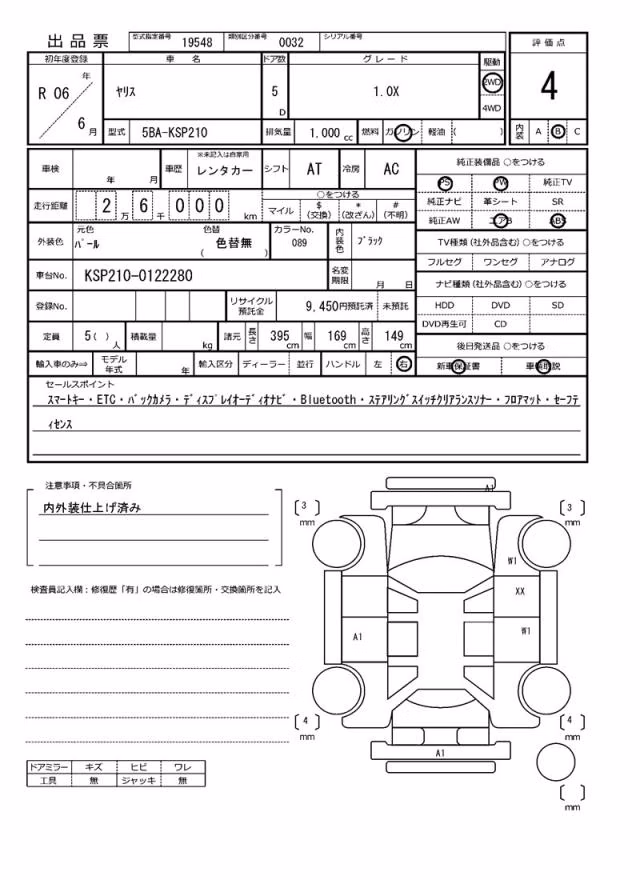 出品票 型式指定番号 19548 類別区分番号 0032 シリアル番号
評価点
4
内装 A B C
初年度登録 車名 ドア数 グレード 駆動
R 06 年 6 月 ヤリス 5 D 1.0X 2WD 4WD
型式 5BA-KSP210 排気量 1.000 cc 燃料 ガソリン 軽油 ( )
車検 年 月 車歴 ※未記入は自家用 レンタカー シフト AT 冷房 AC
走行距離 2 万 6 千 0 0 0 km ○をつける マイル $(交換) *(改ざん) #(不明)
外装色 元色 パール 色替 色替無 ( ) カラーNo. 089 内装色 ブラック
車台No. KSP210-0122280 名変期限 月 日
登録No. リサイクル預託金 9.450円預託済 未預託
定員 5 ( ) 人 積載量 kg 諸元 長さ 395 cm 幅 169 cm 高さ 149 cm
輸入車のみ⇒ モデル年式 年 輸入区分 ディーラー 並行 ハンドル 左 右
純正装備品 ○をつける
PS PW 純正TV
純正ナビ 革シート SR
純正AW エアB ABS
TV種類(社外品含む) ○をつける
フルセグ ワンセグ アナログ
ナビ種類(社外品含む) ○をつける
HDD DVD SD
DVD再生可 CD
後日発送品 ○をつける
新車保証書 車輌取説
セールスポイント
スマートキー・ETC・バックカメラ・ディスプレイオーディオナビ・Bluetooth・ステアリングスイッチクリアランスソナー・フロアマット・セーフテ
ィセンス
注意事項・不具合箇所
内外装仕上げ済み
検査員記入欄：修復歴「有」の場合は修復箇所・交換箇所を記入
ドアミラー キズ ヒビ ワレ
工具 無 ジャッキ 無
A1
[3] mm [3] mm
W1
XX
A1 W1
[4] mm [4] mm
A1
[ ] mm